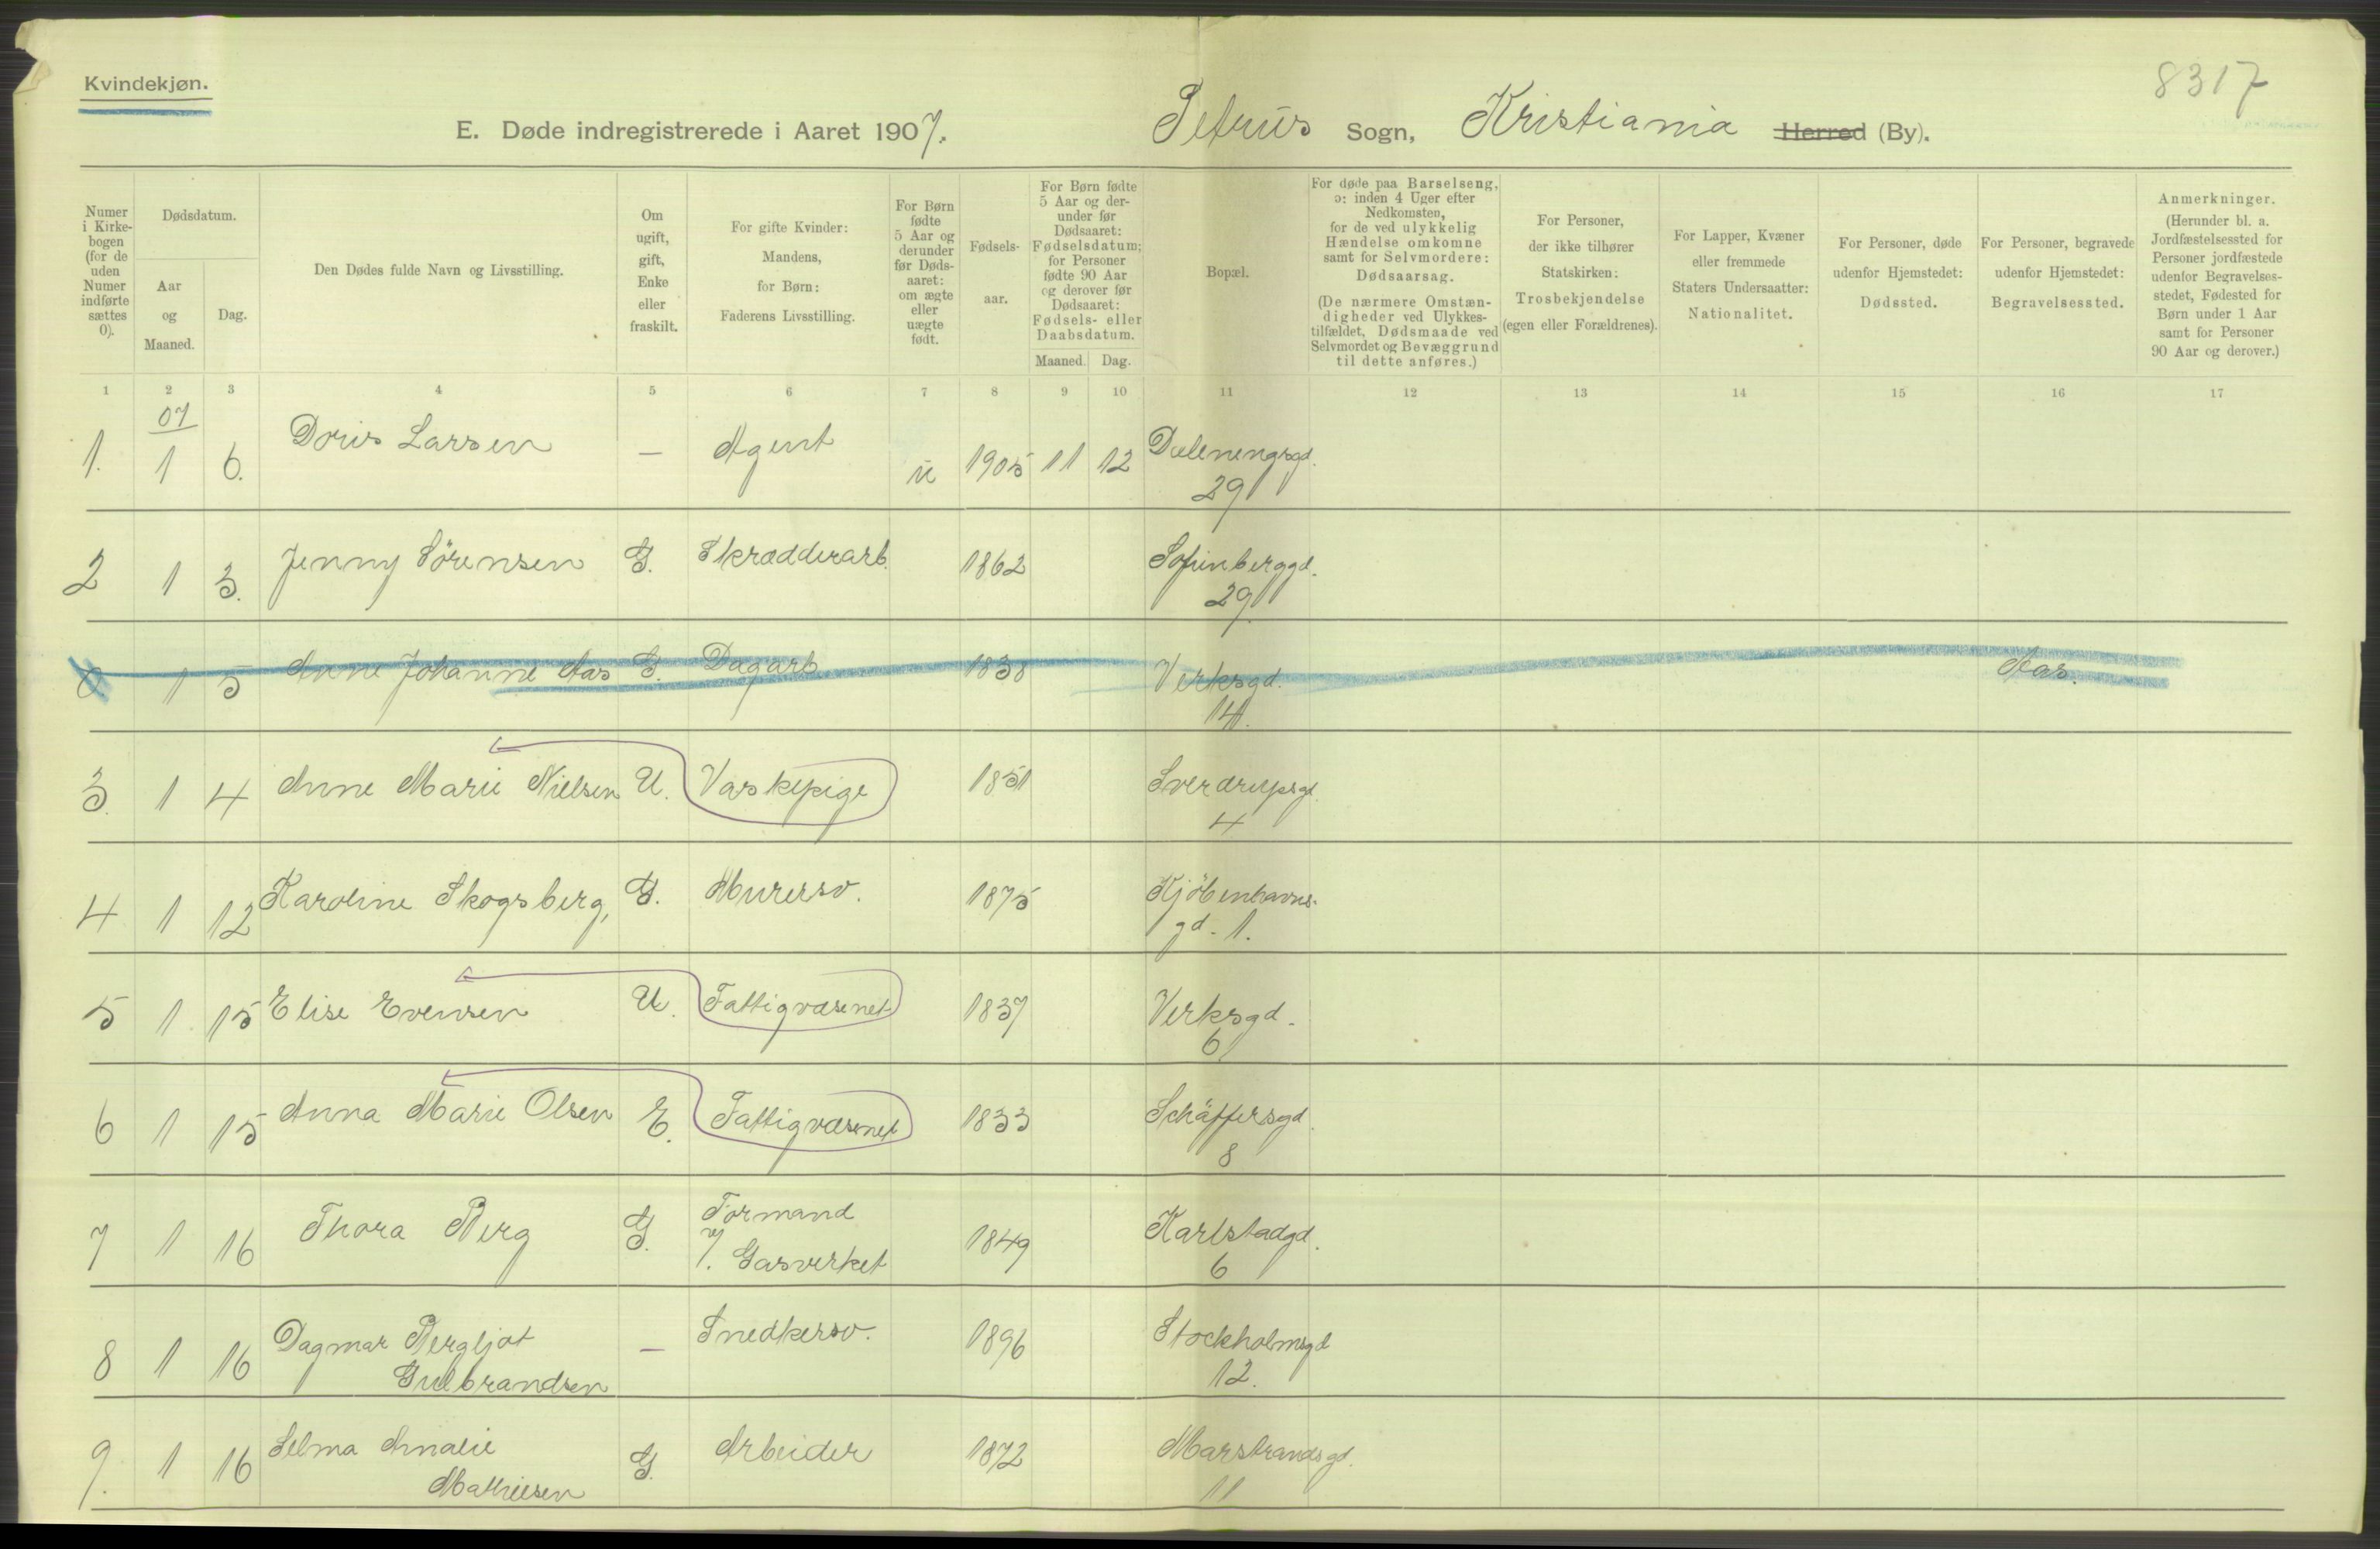 8317
Kvindekjøn.
E. Døde indregistrerede i Aaret 1907. Petrus Sogn, Kristiania Herred (By).
Numer i Kirkebogen (for de uden Numer indførte sættes 0).
Dødsdatum.
Aar og Maaned.
Dag.
Den Dødes fulde Navn og Livsstilling.
Om ugift, gift, Enke eller fraskilt.
For gifte Kvinder: Mandens, for Børn: Faderens Livsstilling.
For Børn fødte 5 Aar og derunder før Dødsaaret: om ægte eller uægte født.
Fødselsaar.
For Børn fødte 5 Aar og derunder før Dødsaaret: Fødselsdatum; for Personer fødte 90 Aar og derover før Dødsaaret: Fødsels- eller Daabsdatum.
Maaned. Dag.
Bopæl.
For døde paa Barselseng, ɔ: inden 4 Uger efter Nedkomsten, for de ved ulykkelig Hændelse omkomne samt for Selvmordere: Dødsaarsag.
(De nærmere Omstændigheder ved Ulykkestilfældet, Dødsmaade ved Selvmordet og Bevæggrund til dette anføres.)
For Personer, der ikke tilhører Statskirken: Trosbekjendelse (egen eller Forældrenes).
For Lapper, Kvæner eller fremmede Staters Undersaatter: Nationalitet.
For Personer, døde udenfor Hjemstedet: Dødssted.
For Personer, begravede udenfor Hjemstedet: Begravelsessted.
Anmerkninger.
(Herunder bl. a. Jordfæstelsessted for Personer jordfæstede udenfor Begravelsesstedet, Fødested for Børn under 1 Aar samt for Personer 90 Aar og derover.)
1 2 3 4 5 6 7 8 9 10 11 12 13 14 15 16 17
07
1. 1 6. Doris Larsen — Agent u 1905 11 12 Dælenengsgd. 29
2 1 3. Jenny Sörensen G. Skrædderarb. 1862 Sofienberggd. 29
0 1 5 Anne Johanne Aas G. Dagarb. 1838 Verksgd. 14. Aas.
3. 1 4 Anne Marie Nielsen U. Vaskepige 1851 Sverdrupsgd. 4
4 1 12 Karoline Skogsberg, G. Murersv. 1875 Kjöbenhavns-
gd. 1.
5 1 15 Elise Evensen U. Fattigvæsenet 1837 Verksgd. 6
6 1 15 Anna Marie Olsen E. Fattigvæsenet 1833 Schäffersgd. 8
7 1 16 Thora Berg G. Formand
v/. Gasverket 1849 Karlstadgd. 6
8 1 16 Dagmar Bergljot
Gulbrandsen — Snedkersv. 1896 Stockholmsgd 12.
9. 1 16 Selma Amalie
Mathiesen G. Arbeider 1872 Marstrandsgd. 11